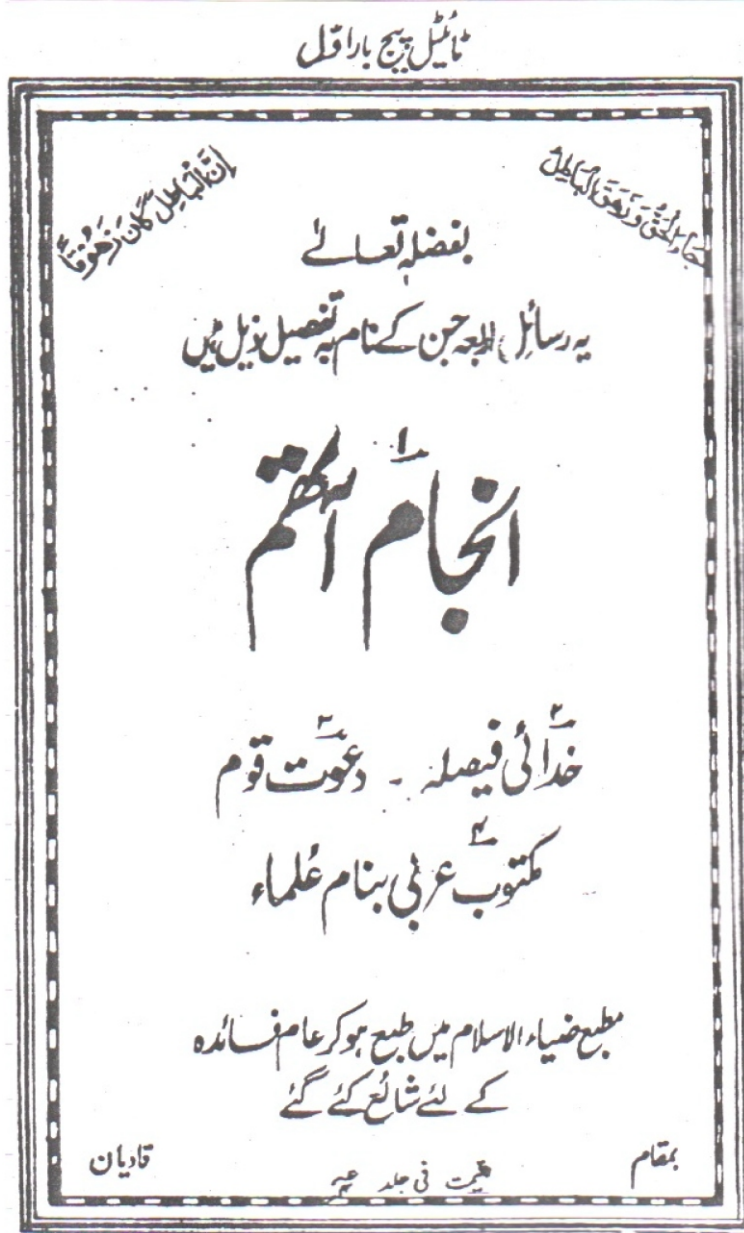 ٹائیٹل پیج بار اوّل
جَاءَ الْحَقُّ وَزَهَقَ الْبَاطِلُ
اِنَّ الْبَاطِلَ كَانَ زَهُوْقًا
بفضلہٖ تعالےٰ
یہ رسائل اربعہ جن کے نام بہ تفصیل ذیل ہیں
۱
انجام آتھم
۲ ۳
خدائی فیصلہ - دعوت قوم
۴
مکتوب عربی بنام عُلماء
مطبع ضیاء الاسلام میں طبع ہوکر عام فائدہ
کے لئے شائع کئے گئے
بمقام قادیان
قیمت فی جلد